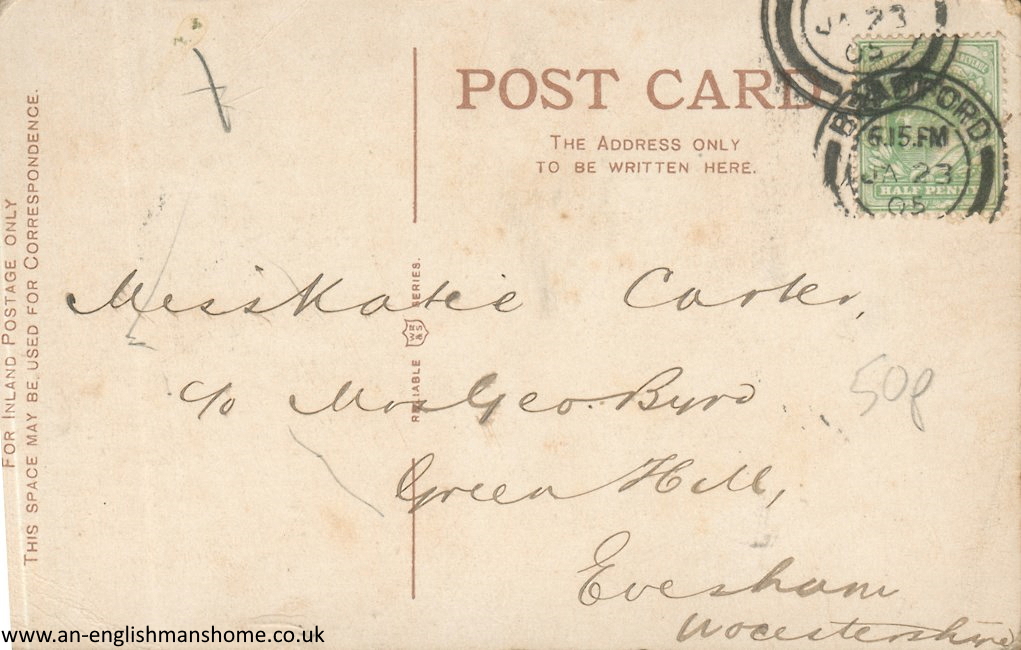 POST CARD
THE ADDRESS ONLY
TO BE WRITTEN HERE.
FOR INLAND POSTAGE ONLY
THIS SPACE MAY BE USED FOR CORRESPONDENCE.
RELIABLE WE&S SERIES.
JA 23
05
BRADFORD
6.15.PM
JA 23
05
HALF PENNY
Miss Katie Carter,
c/o Mrs Geo. Byrd
50p
Green Hill,
Evesham
Worcestershire
www.an-englishmanshome.co.uk